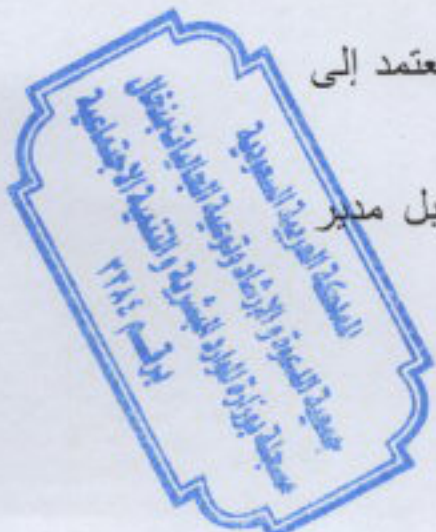 عتمد إلى
يل مدير
المملكة العربية السعودية
جمعية الدعوة والإرشاد وتوعية الجاليات
مسجلة بوزارة الموارد البشرية والتنمية الاجتماعية
برقم ٣٣٨٤